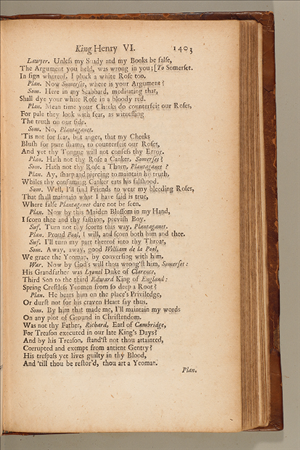 King Henry VI. 1403
Lawyer. Unless my Study and my Books be false,
The Argument you held, was wrong in you; [To Somerset.
In sign whereof, I pluck a white Rose too.
Plan. Now Somerset, where is your Argument?
Som. Here in my Scabbard, meditating that,
Shall dye your white Rose in a bloody red.
Plan. Mean time your Cheeks do counterfeit our Roses,
For pale they look with fear, as witnessing
The truth on our side.
Som. No, Plantagenet.
'Tis not for fear, but anger, that thy Cheeks
Blush for pure shame, to counterfeit our Roses,
And yet thy Tongue will not confess thy Error.
Plan. Hath not thy Rose a Canker, Somerset?
Som. Hath not thy Rose a Thorn, Plantagenet?
Plan. Ay, sharp and piercing to maintain his truth,
Whiles thy consuming Canker eats his falshood.
Som. Well, I'll find Friends to wear my bleeding Roses,
That shall maintain what I have said is true,
Where false Plantagenet dare not be seen.
Plan. Now by this Maiden Blossom in my Hand,
I scorn thee and thy fashion, peevish Boy.
Suf. Turn not thy scorns this way, Plantagenet.
Plan. Proud Pool, I will, and scorn both him and thee.
Suf. I'll turn my part thereof into thy Throat,
Som. Away, away, good William de la Pool,
We grace the Yeoman, by conversing with him.
War. Now by God's will thou wrong'st him, Somerset:
His Grandfather was Lyonel Duke of Clarence,
Third Son to the third Edward King of England:
Spring Crestless Yeomen from so deep a Root?
Plan. He bears him on the place's Priviledge,
Or durst not for his craven Heart say thus.
Som. By him that made me, I'll maintain my words
On any plot of Ground in Christendom.
Was not thy Father, Richard, Earl of Cambridge,
For Treason executed in our late King's Days?
And by his Treason, stand'st not thou attainted,
Corrupted and exempt from ancient Gentry?
His trespass yet lives guilty in thy Blood,
And 'till thou be restor'd, thou art a Yeoman.
Plan.